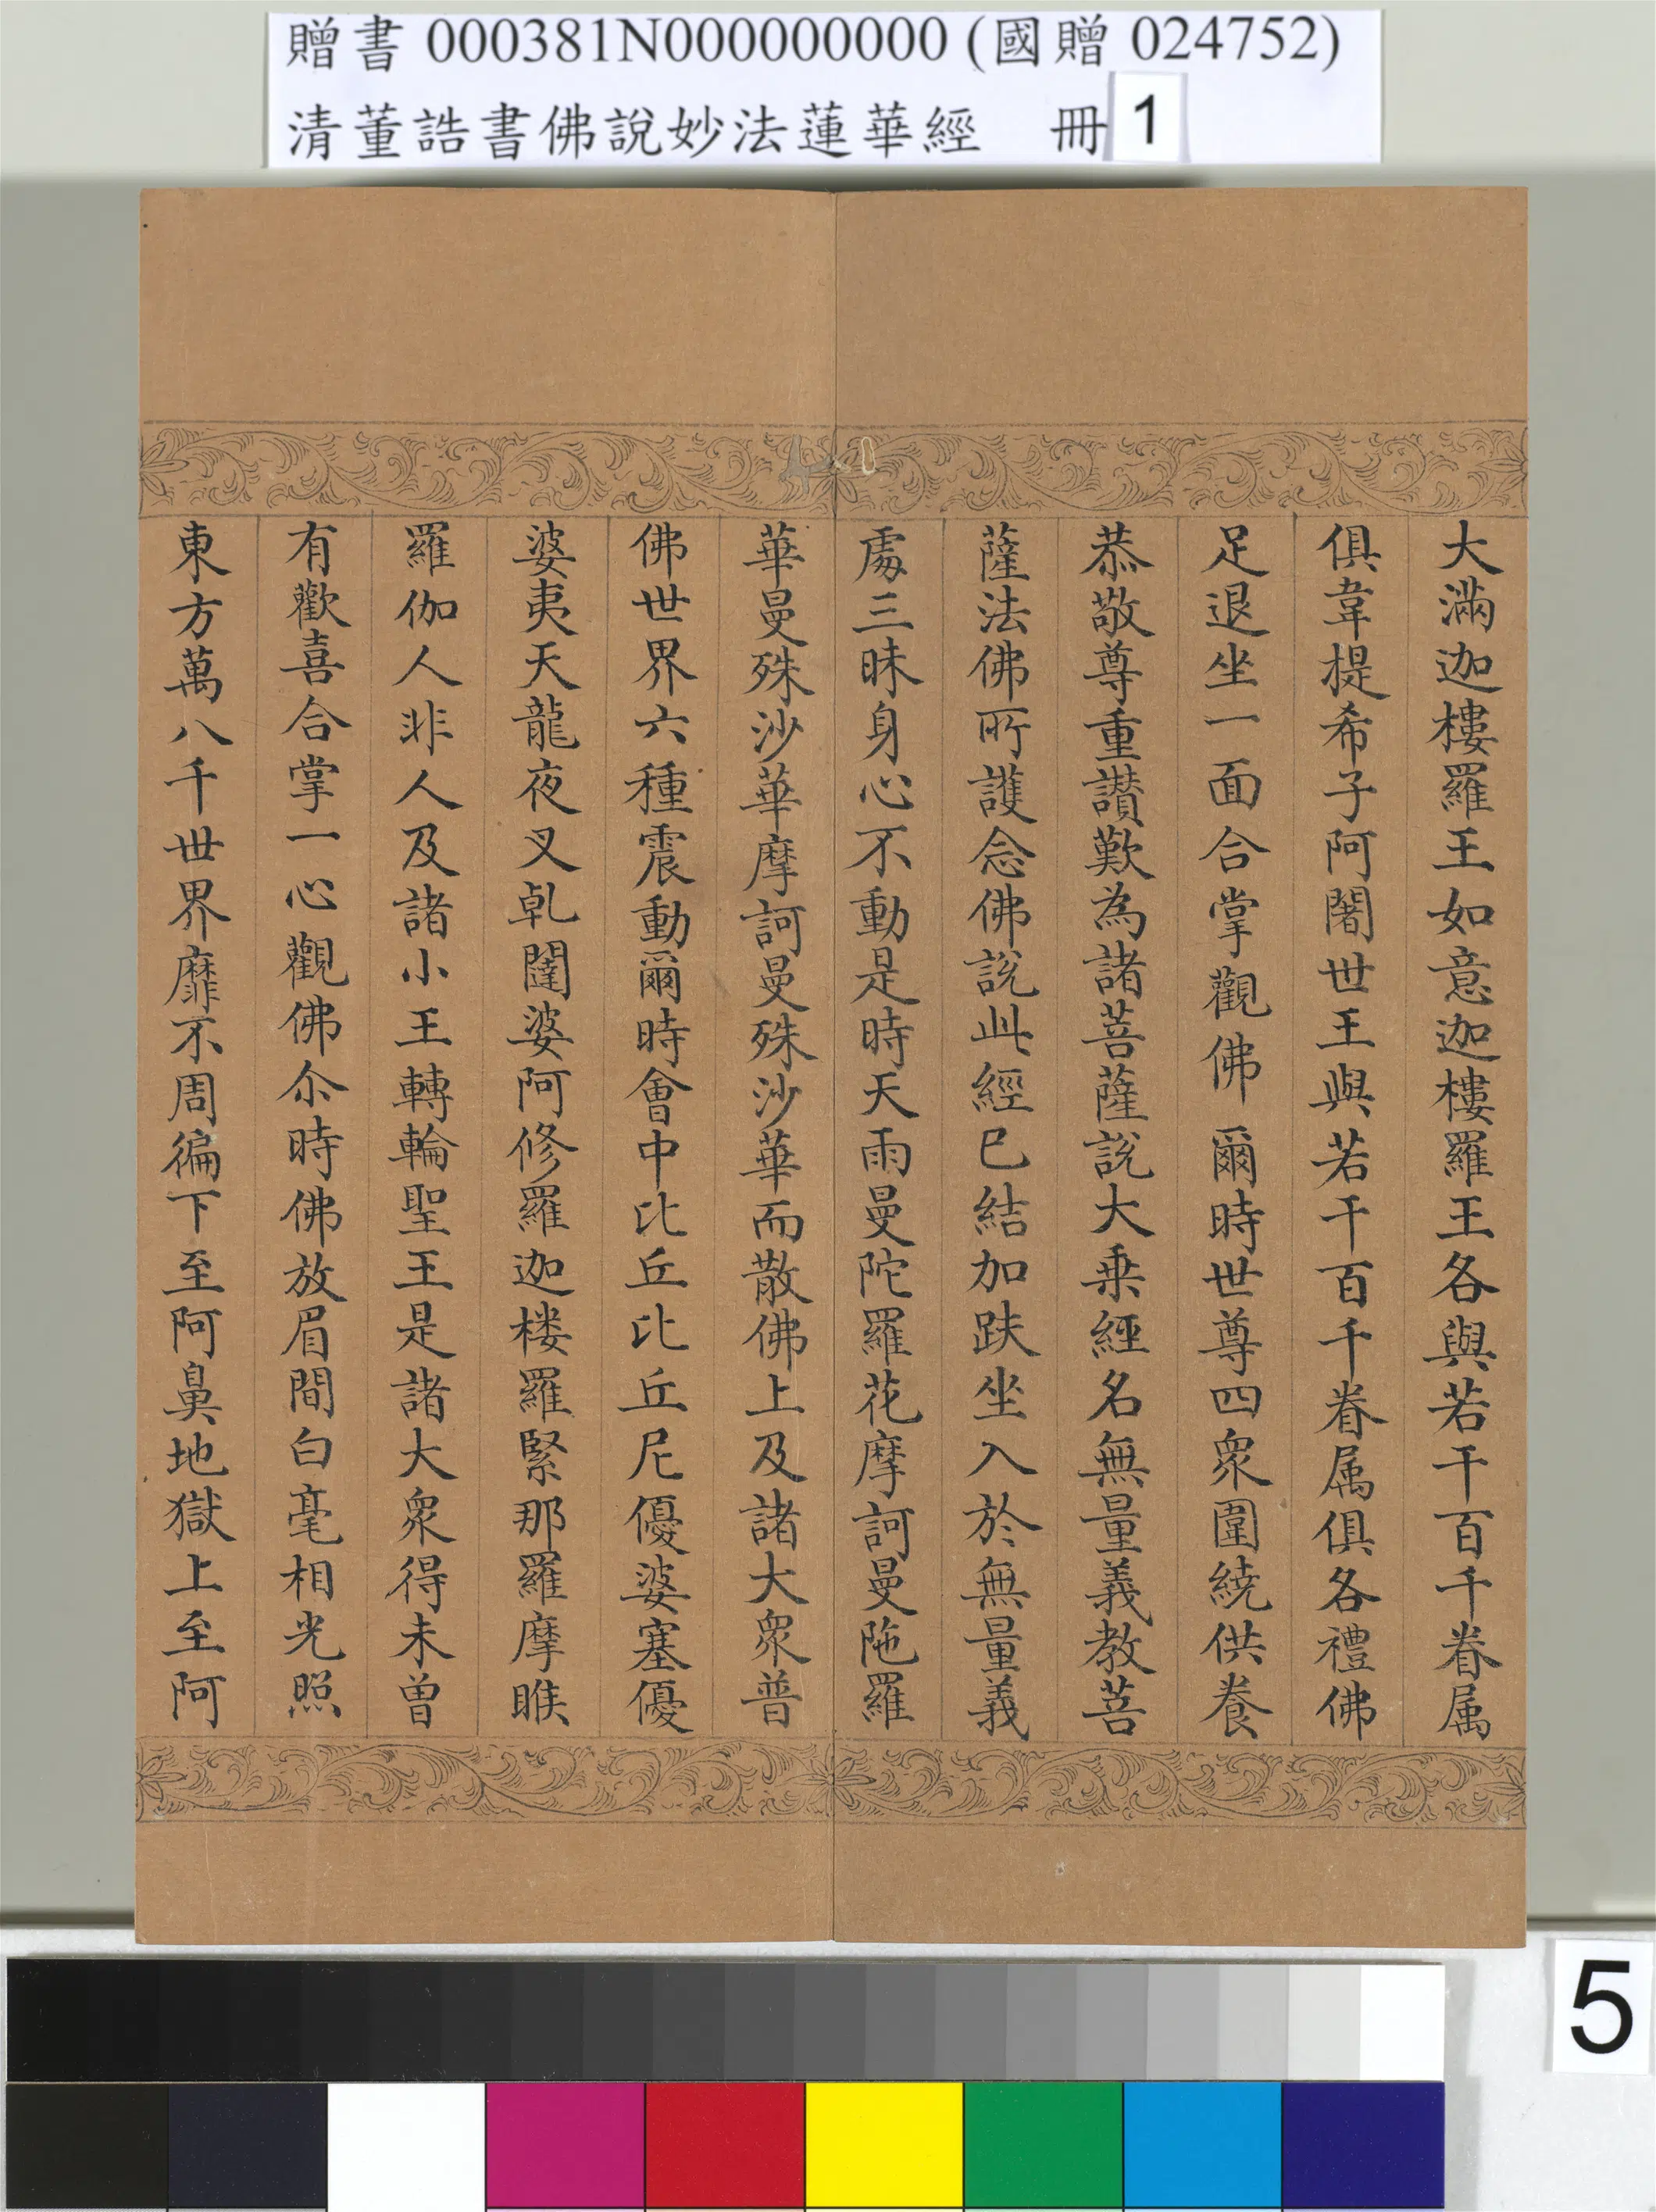 贈書 000381N000000000 (國贈 024752)
清董誥書佛說妙法蓮華經 冊 1
大滿迦樓羅王如意迦樓羅王各與若干百千眷属
俱韋提希子阿闍世王與若干百千眷属俱各禮佛
足退坐一面合掌觀佛爾時世尊四眾圍繞供養
恭敬尊重讃歎為諸菩薩說大乗經名無量義教菩
薩法佛所護念佛說此經已結加趺坐入於無量義
處三昧身心不動是時天雨曼陀羅花摩訶曼陁羅
華曼殊沙華摩訶曼殊沙華而散佛上及諸大眾普
佛世界六種震動爾時會中比丘比丘尼優婆塞優
婆夷天龍夜叉乹闥婆阿修羅迦楼羅緊那羅摩睺
羅伽人非人及諸小王轉輪聖王是諸大眾得未曽
有歡喜合掌一心觀佛尒時佛放眉間白毫相光照
東方萬八千世界靡不周徧下至阿鼻地獄上至阿
5